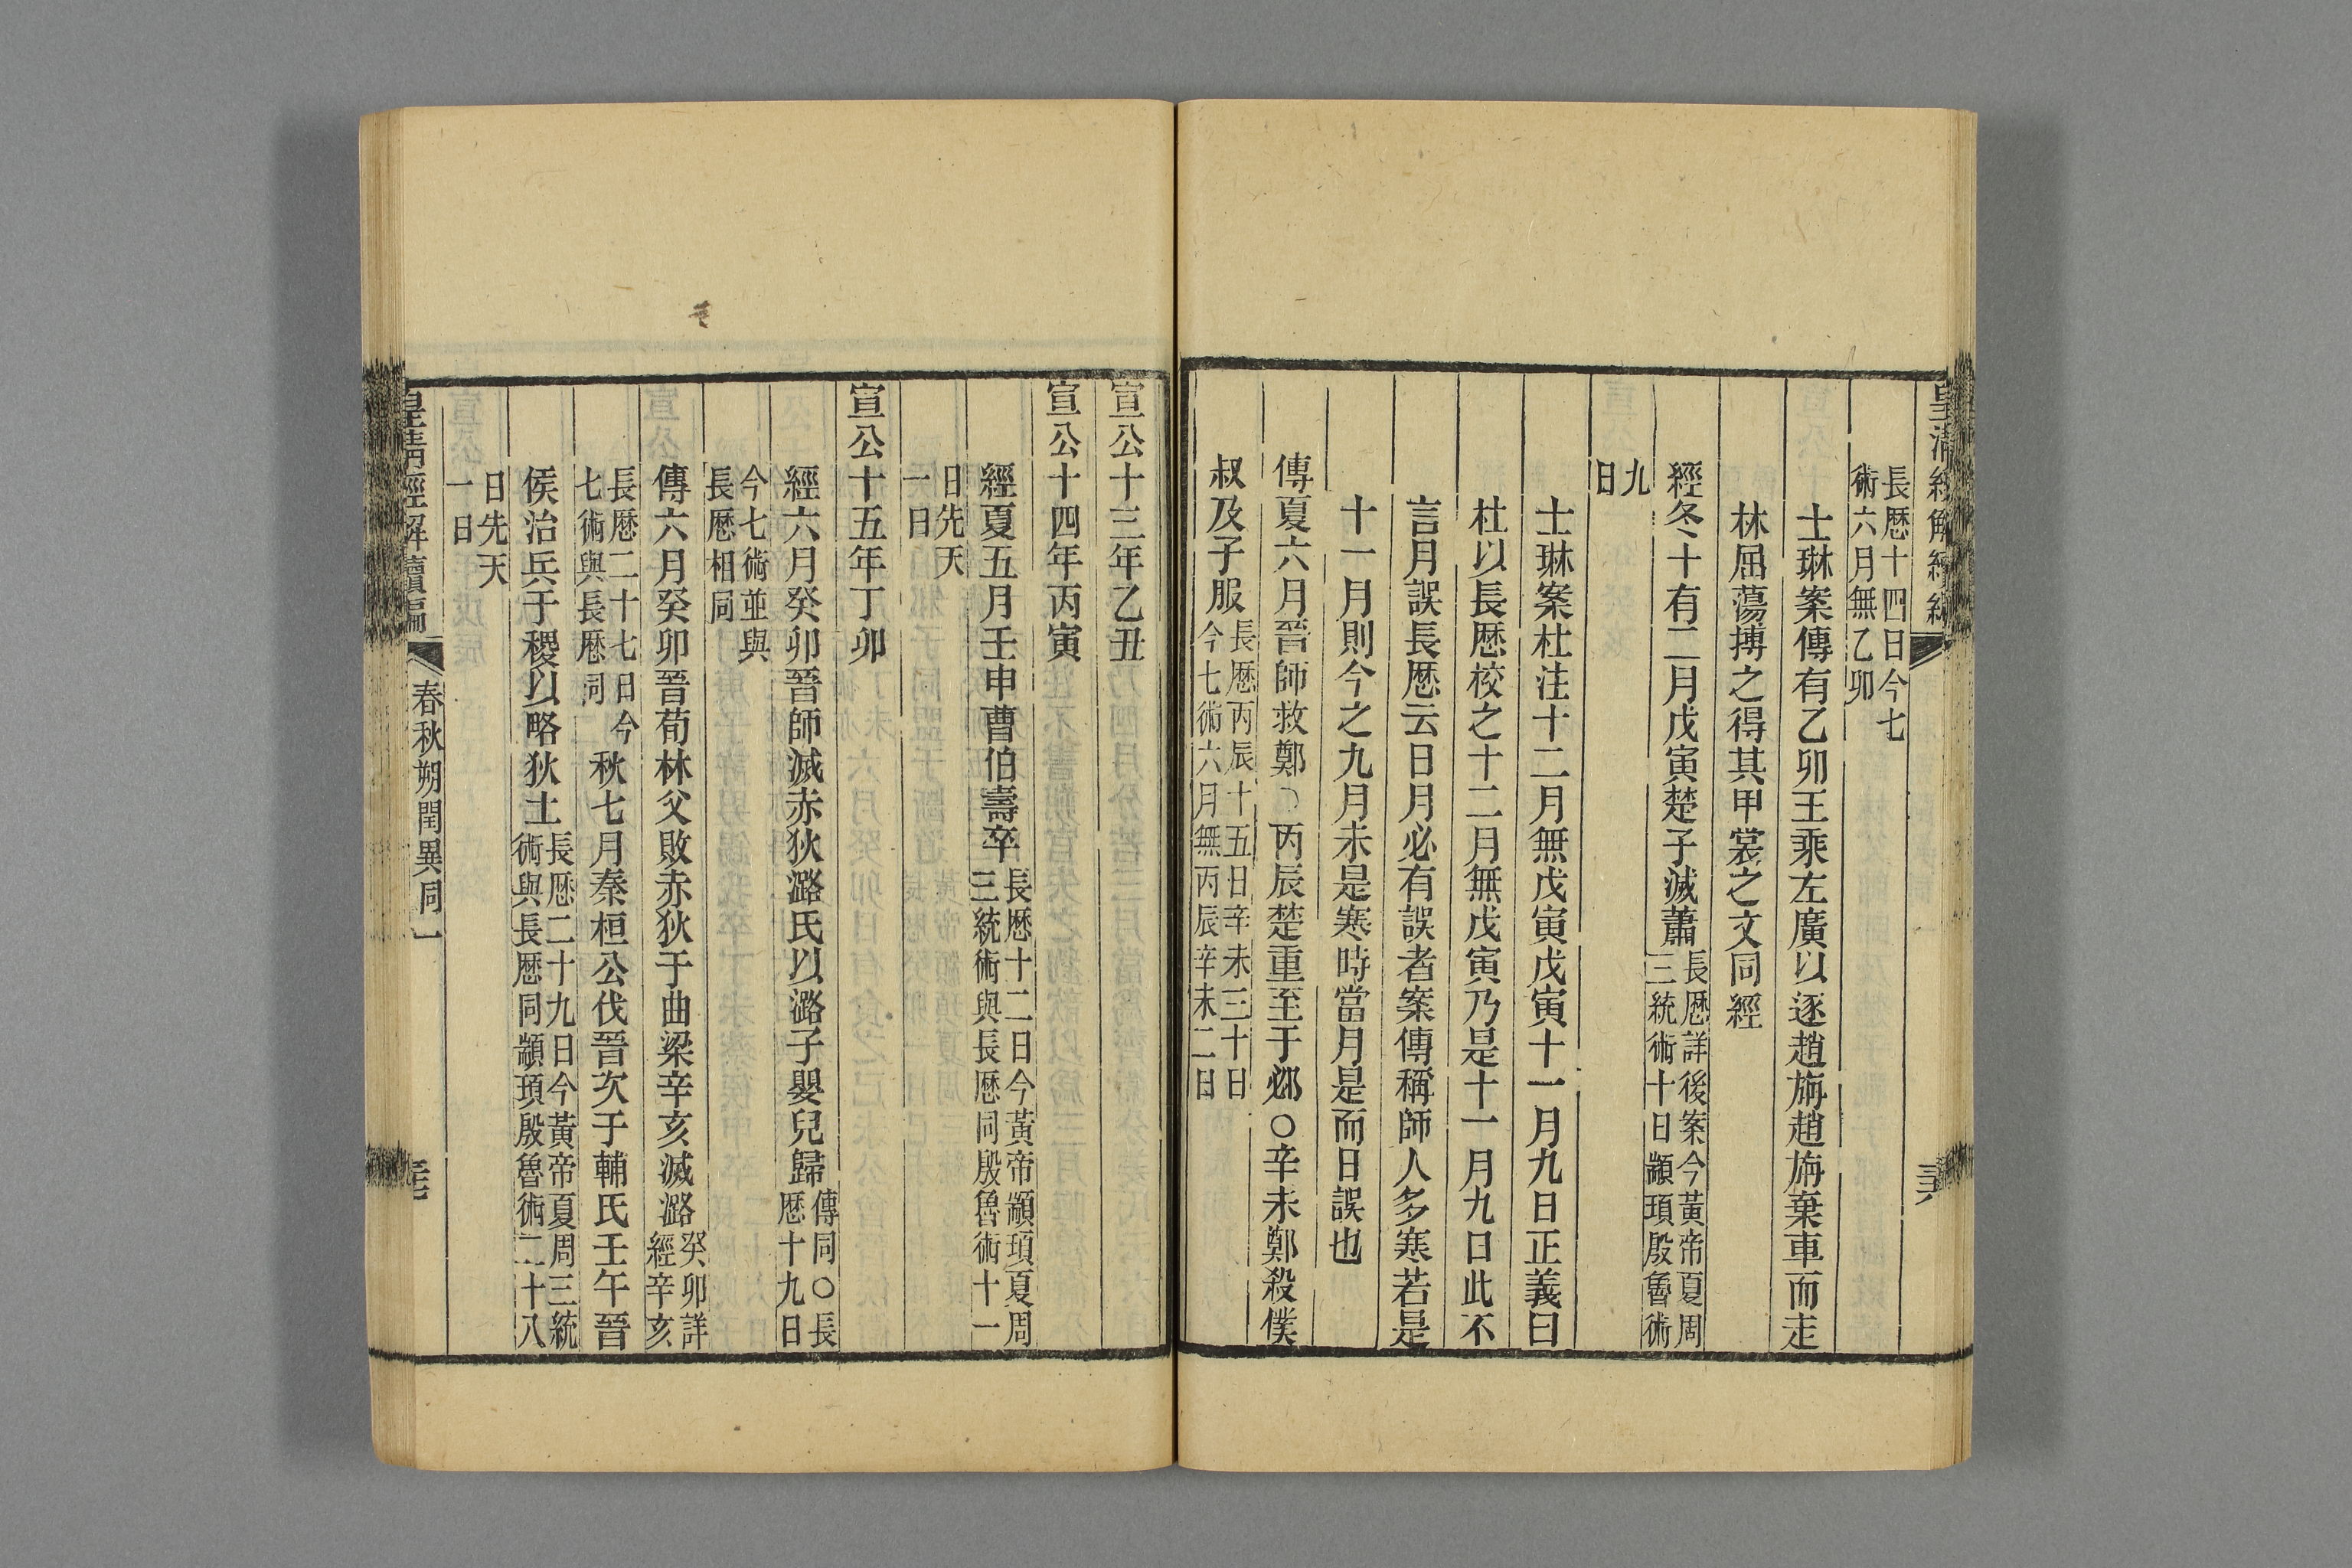 皇清經解續編
長曆十四日今七
術六月無乙卯
士琳案傳有乙卯王乘左廣以逐趙旃趙旃棄車而走
林屈蕩搏之得其甲裳之文同經
經冬十有二月戊寅楚子滅蕭
長曆詳後案今黃帝夏周
三統術十日顓頊殷魯術
九
日
士琳案杜注十二月無戊寅戊寅十一月九日正義曰
杜以長曆校之十二月無戊寅乃是十一月九日此不
言月誤長曆云日月必有誤者案傳稱師人多寒若是
十一月則今之九月未是寒時當月是而日誤也
傳夏六月晉師救鄭○丙辰楚重至于邲○辛未鄭殺僕
叔及子服
長曆丙辰十五日辛未三十日
今七術六月無丙辰辛未二日
宣公十三年乙丑
宣公十四年丙寅
經夏五月壬申曹伯壽卒
長曆十二日今黃帝顓頊夏周
三統術與長曆同殷魯術十一
日先天
一日
宣公十五年丁卯
經六月癸卯晉師滅赤狄潞氏以潞子嬰兒歸
傳同○長
曆十九日
今七術並與
長曆相同
傳六月癸卯晉荀林父敗赤狄于曲梁辛亥滅潞
癸卯詳
經辛亥
長曆二十七日今
七術與長曆同
秋七月秦桓公伐晉次于輔氏壬午晉
侯治兵于稷以略狄土
長曆二十九日今黃帝夏周三統
術與長曆同顓頊殷魯術二十八
日先天
一日
皇清經解續編
春秋朔閏異同一